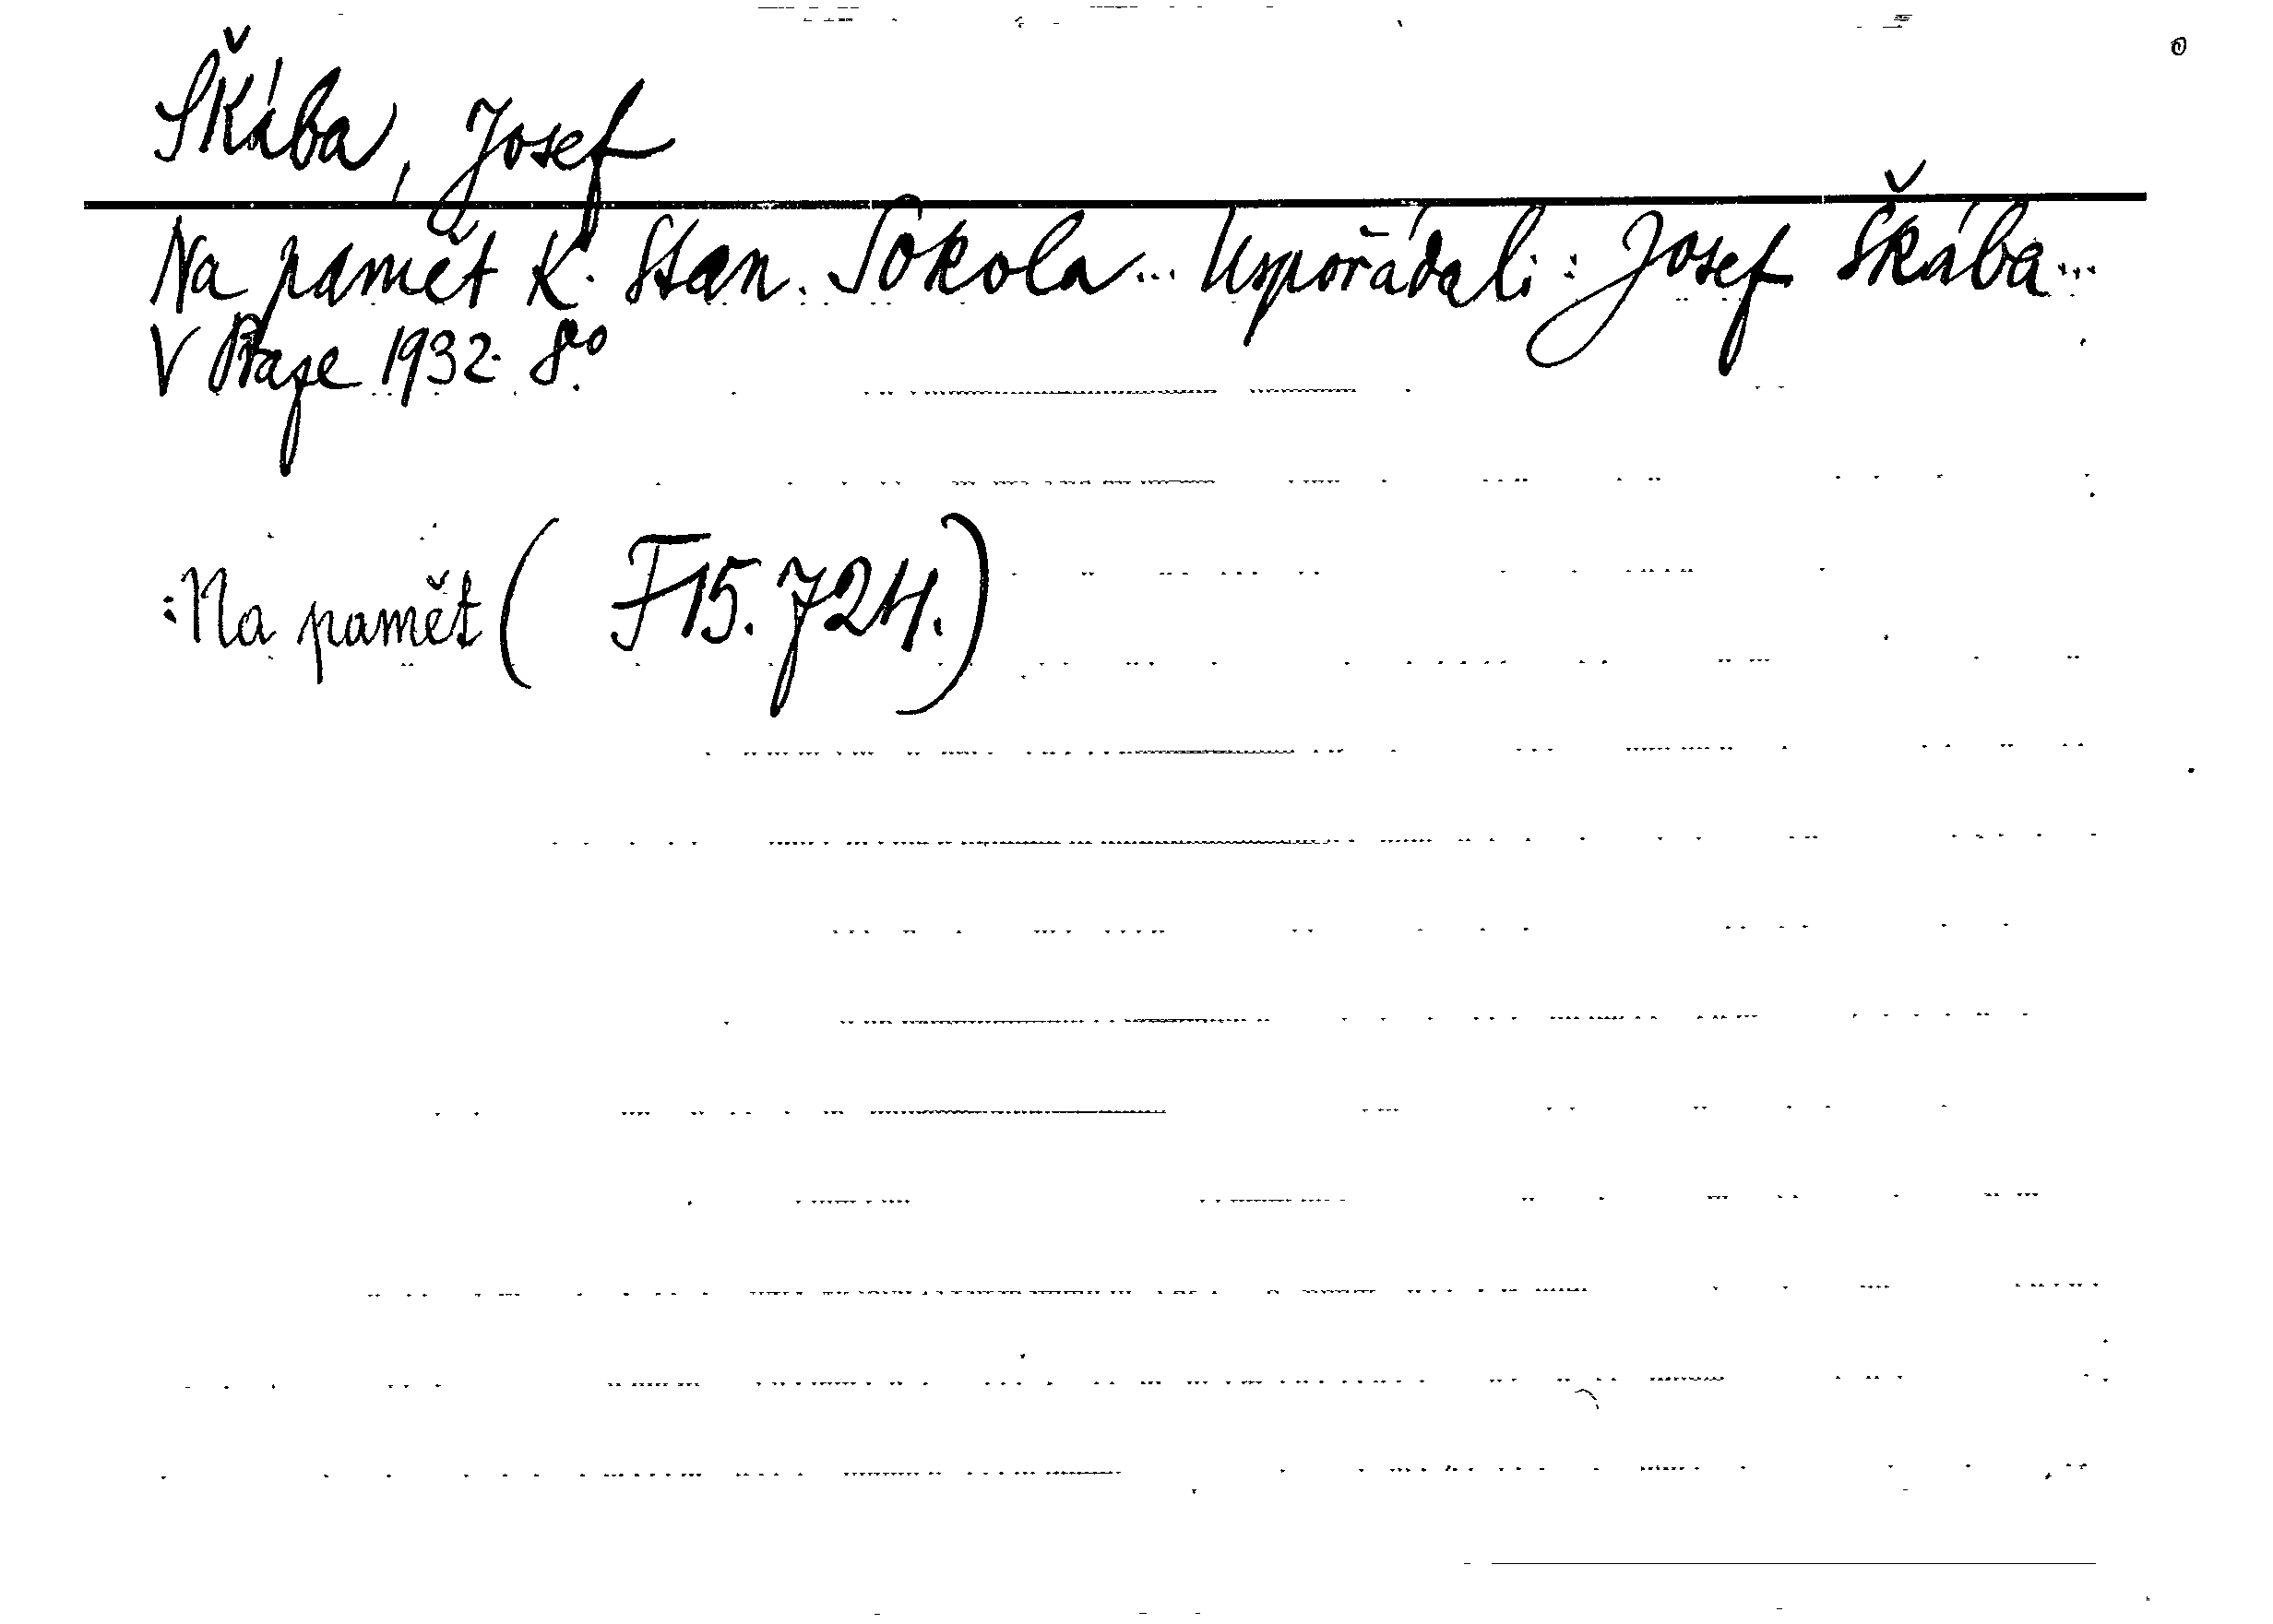 Škába, Josef
Na pamět K. Stan. Sokola... Uspořádali: Josef Škába...
V Praze 1932. 8o.
:Na pamět ( F15.724.)